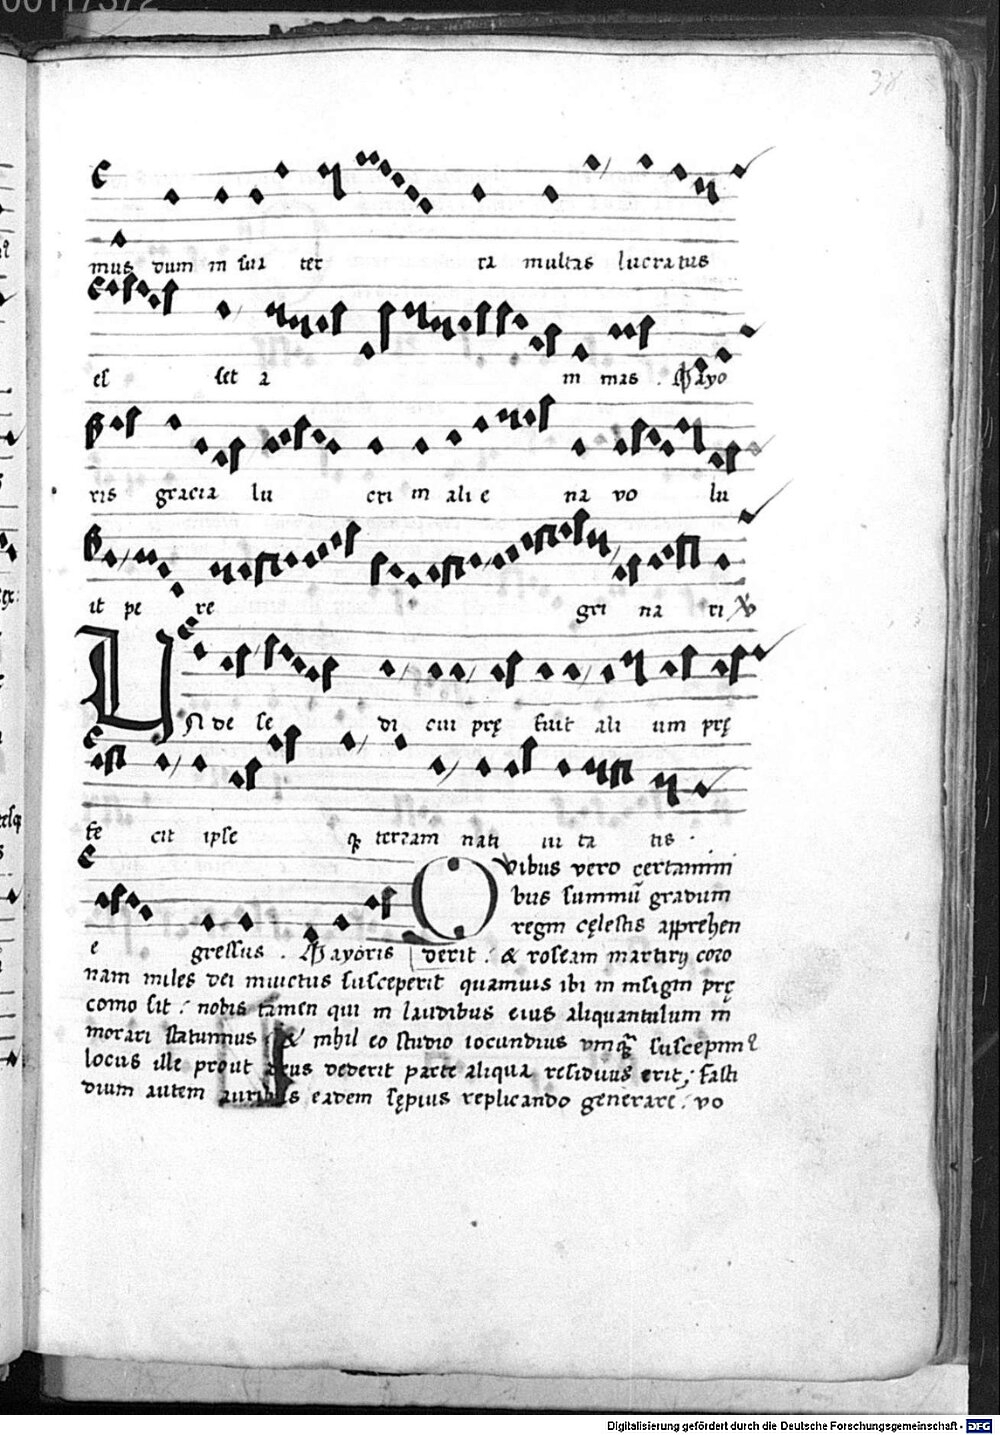 38
mus dum in sua ter ra multas lucratus
es set a ni mas . Mayo
ris gracia lu cri in ali e na vo lu
it pe re gri na ri ℣
UNde se di cui prę fuit ali um prę
fe cit ipse ꝙ terram nati ui ta tis .
e gressus . Mayoris
Qvibus vero certamini
bus summū gradum
regni cęlestis apprehen
derit : & roseam martirij coro
nam miles dei inuictus susceperit quamuis ibi in insigni prę
conio sit : nobis tamen qui in laudibus eius aliquantulum in
morari statuimus & nihil eo studio iocundius
locus ille prout deus dederit parte aliqua residuus erit; fasti
dium autem auribus eadem sępius replicando generare : vo
Digitalisierung gefördert durch die Deutsche Forschungsgemeinschaft - DFG